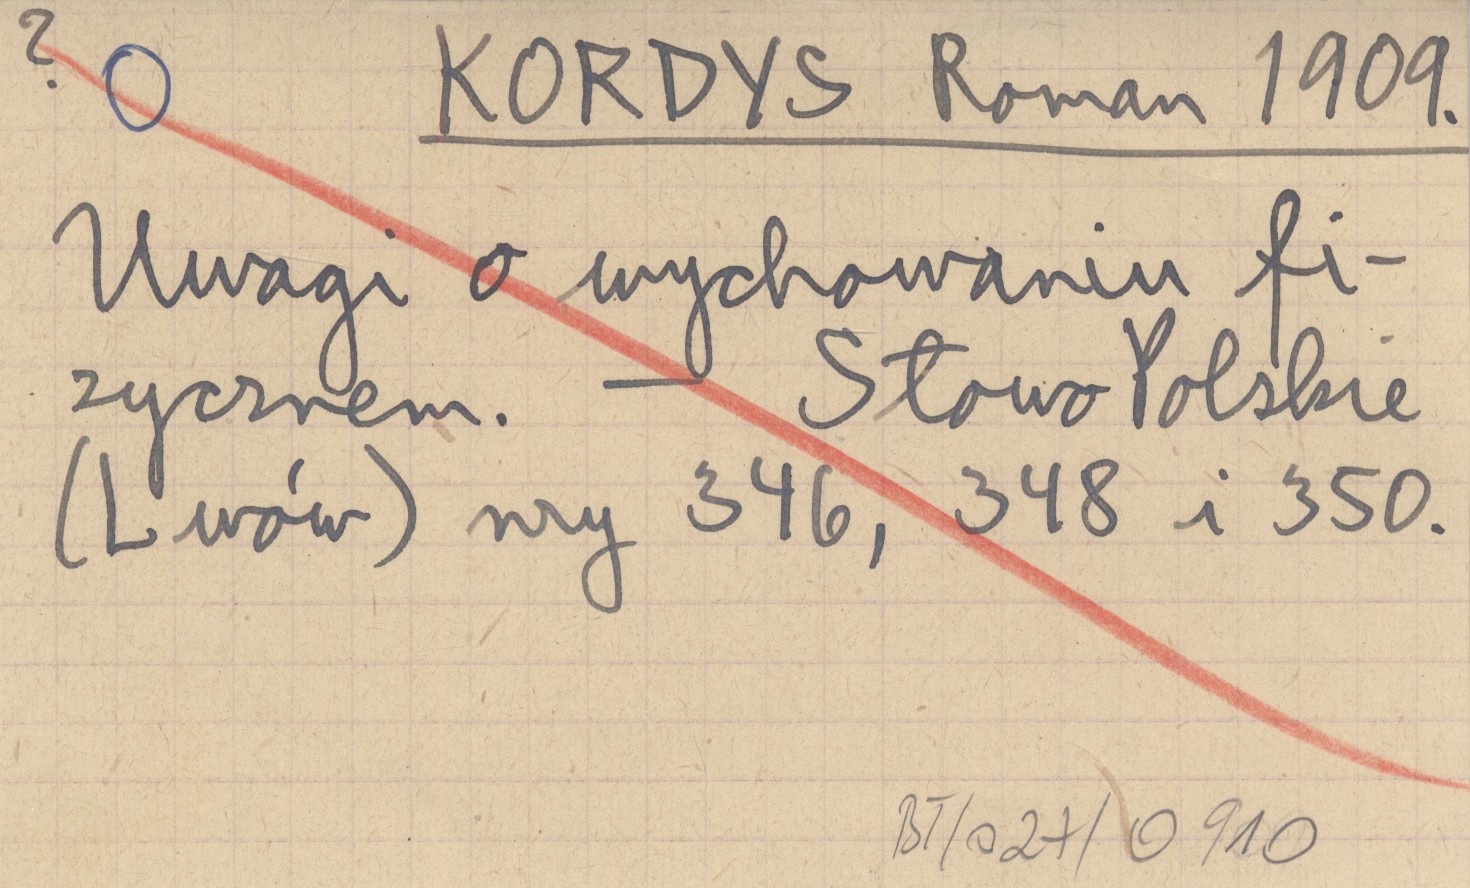 ? O KORDYS Roman 1909.
Uwagi o wychowaniu fi-
zycznem. — Słowo Polskie
(Lwów) nry 346, 348 i 350.
BT/027/0910